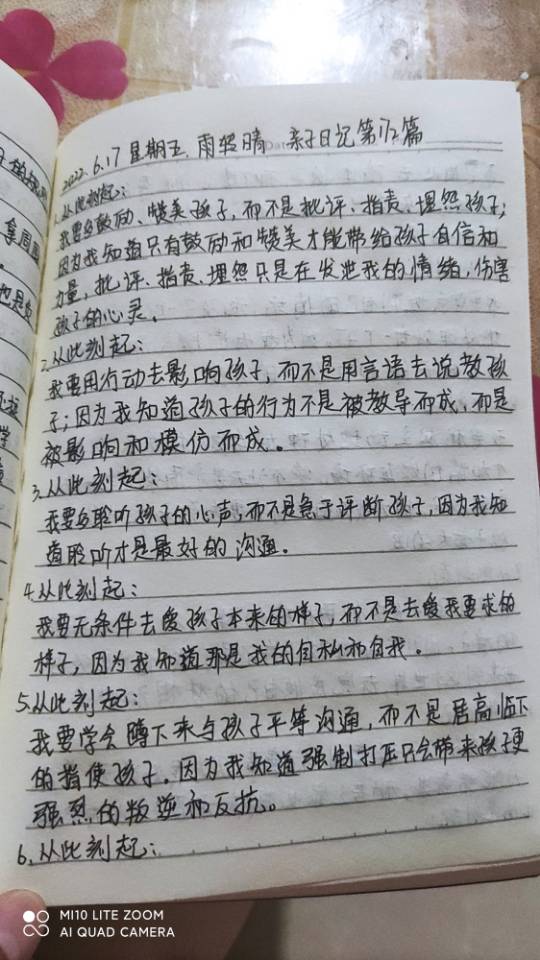 2022.6.17 星期五.雨转晴 亲子日记第172篇
1.从此刻起:
我要多鼓励、赞美孩子,而不是批评、指责、埋怨孩子;
因为我知道只有鼓励和赞美才能带给孩子自信和
力量,批评、指责、埋怨只是在发泄我的情绪,伤害
孩子的心灵。
2.从此刻起:
我要用行动去影响孩子,而不是用言语去说教孩
子;因为我知道孩子的行为不是被教导而成,而是
被影响和模仿而成。
3.从此刻起:
我要多聆听孩子的心声,而不是急于评断孩子,因为我知
道聆听才是最好的沟通。
4.从此刻起:
我要无条件去爱孩子本来的样子,而不是去爱我要求的
样子,因为我知道那是我的自私和自我。
5.从此刻起:
我要学会蹲下来与孩子平等沟通,而不是居高临下
的指使孩子.因为我知道强制打压只会带来孩子更
强烈的叛逆和反抗。
6.从此刻起:
MI10 LITE ZOOM
AI QUAD CAMERA